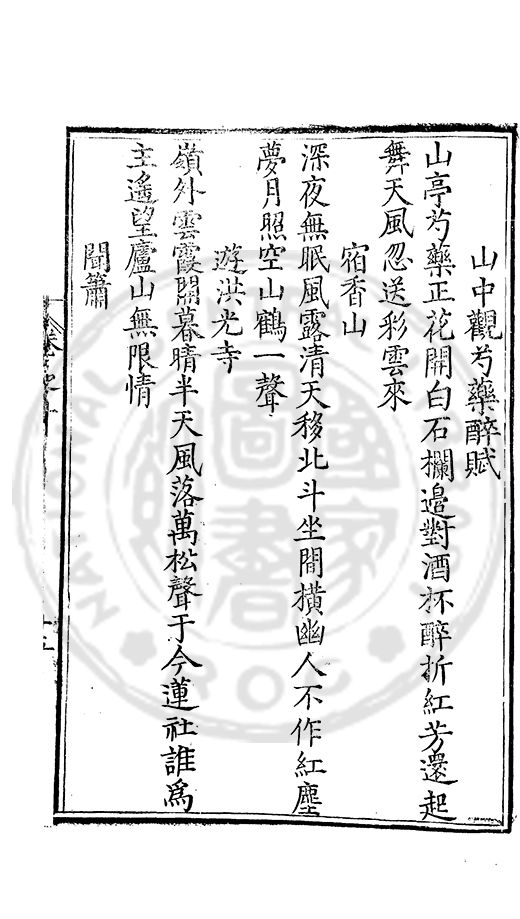 山中觀芍藥醉賦
山亭芍藥正花開白石欄邉對酒杯醉折紅芳還起
舞天風忽送彩雲來
宿香山
深夜無眠風露清天移北斗坐間橫幽人不作紅塵
夢月照空山鶴一聲
遊洪光寺
嶺外雲霞開暮晴半天風落萬松聲于今蓮社誰爲
主遙望廬山無限情
聞簫